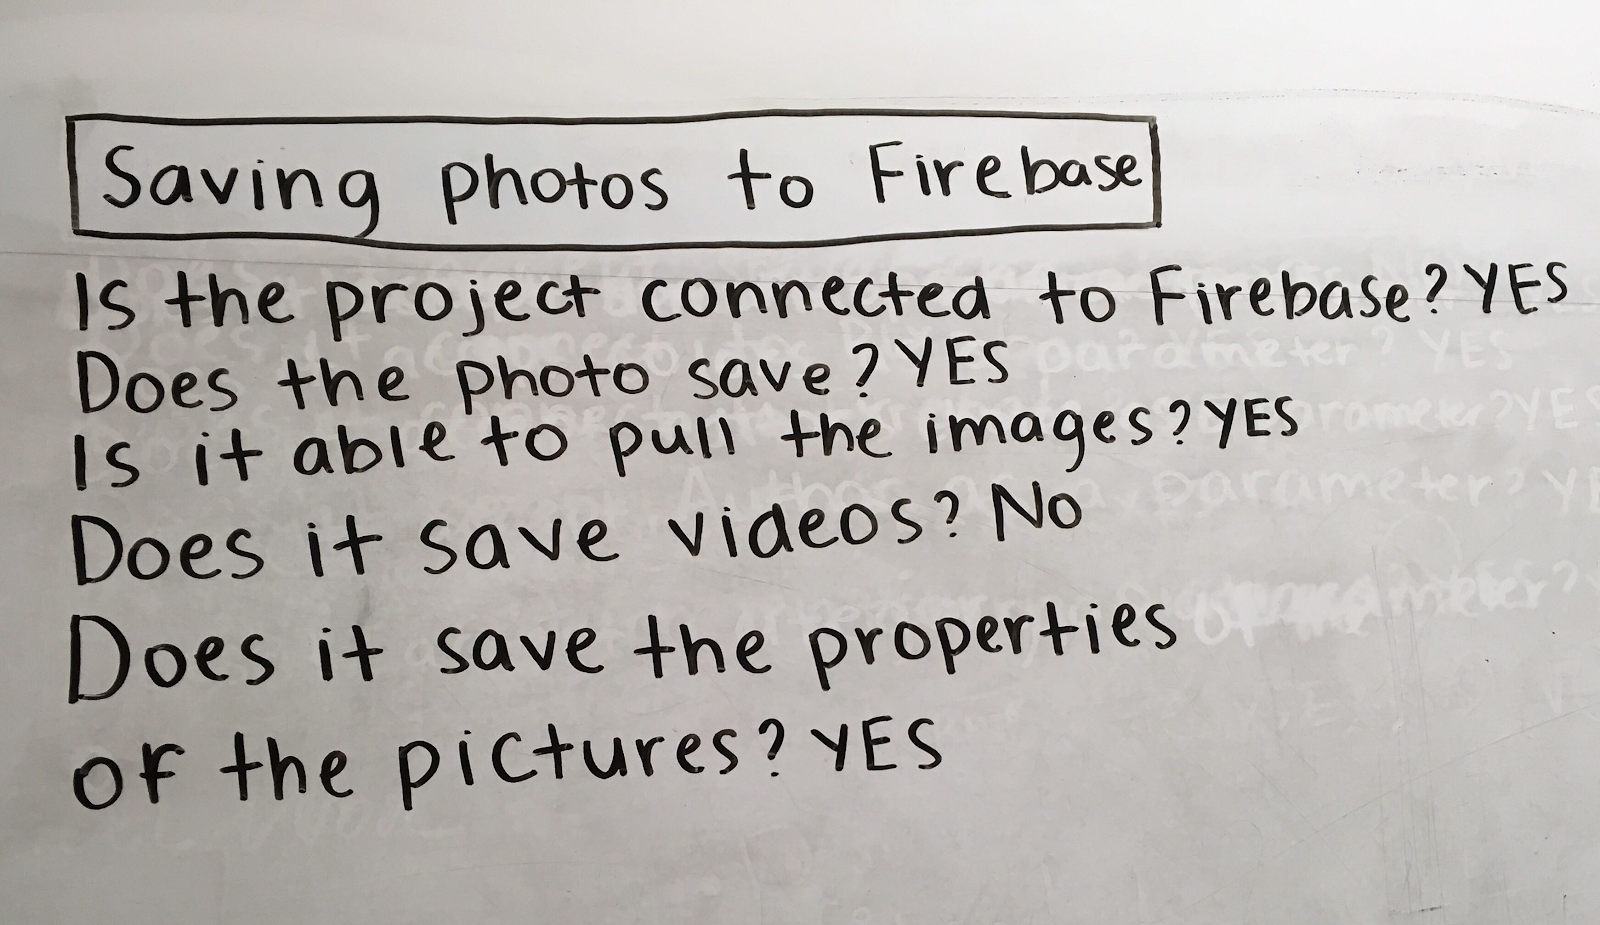 Saving photos to Firebase
Is the project connected to Firebase? YES
Does the photo save? YES
Is it able to pull the images? YES
Does it save videos? No
Does it save the properties
of the pictures? YES